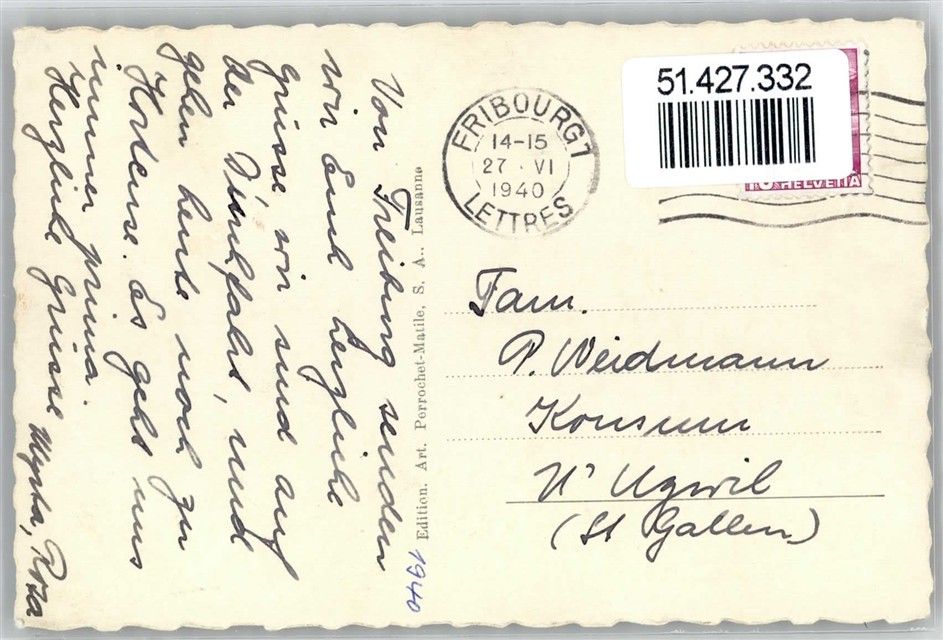 Von Freiburg senden
wir Euch herzliche
Grüsse wir sind auf
der Durchfahrt, und
gehen heute noch zur
Hortense. Es geht uns
immer prima.
Herzliche Grüsse
Rosa.
Edition. Art. Perrochet-Matile, S. A., Lausanne
1940
FRIBOURG 1
14-15
27 · VI
1940
LETTRES
51.427.332
10 HELVETIA
Fam.
P. Weidmann
Konsum
N' Uzwil
(St Gallen)